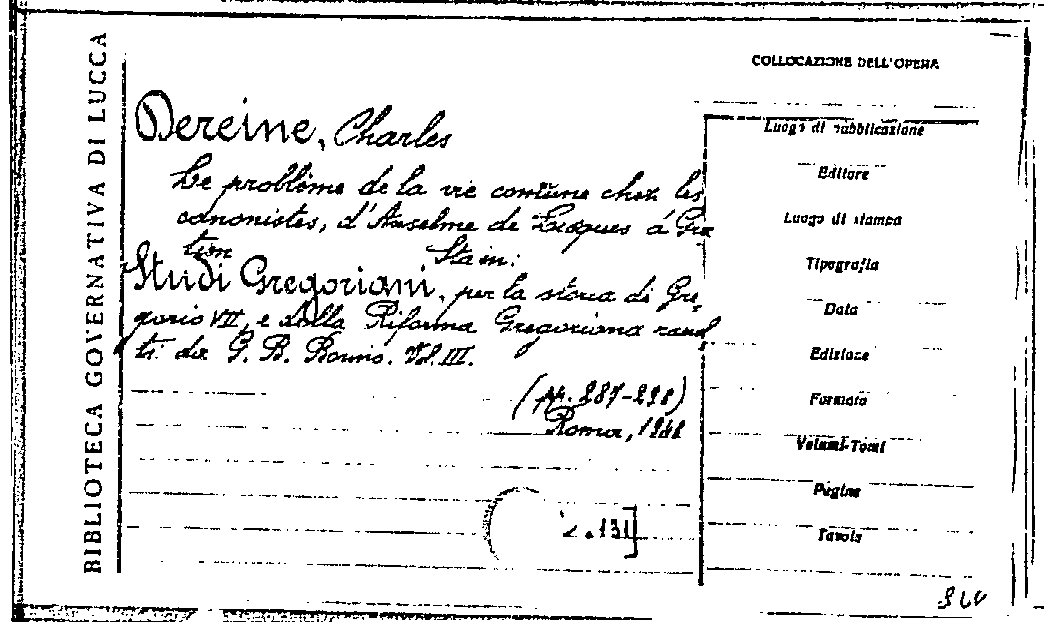 BIBLIOTECA GOVERNATIVA DI LUCCA
Dereine, Charles
Le problème de la vie comune chez les
canonistes, d'Anselme de Lucques á Gra
tien Sta in:
Studi Gregoriani, per la storia di Gre,
gorio VII, e della Riforma Gregoriana
ti da G. B. Borino. Vol. III.
(pp. 287-298)
Roma, 1948
2.131]
COLLOCAZIONE DELL'OPERA
Luogo di pubblicazione
Editore
Luogo di stampa
Tipografia
Data
Edizione
Formato
Volumi-Tomi
Pagine
Tavole